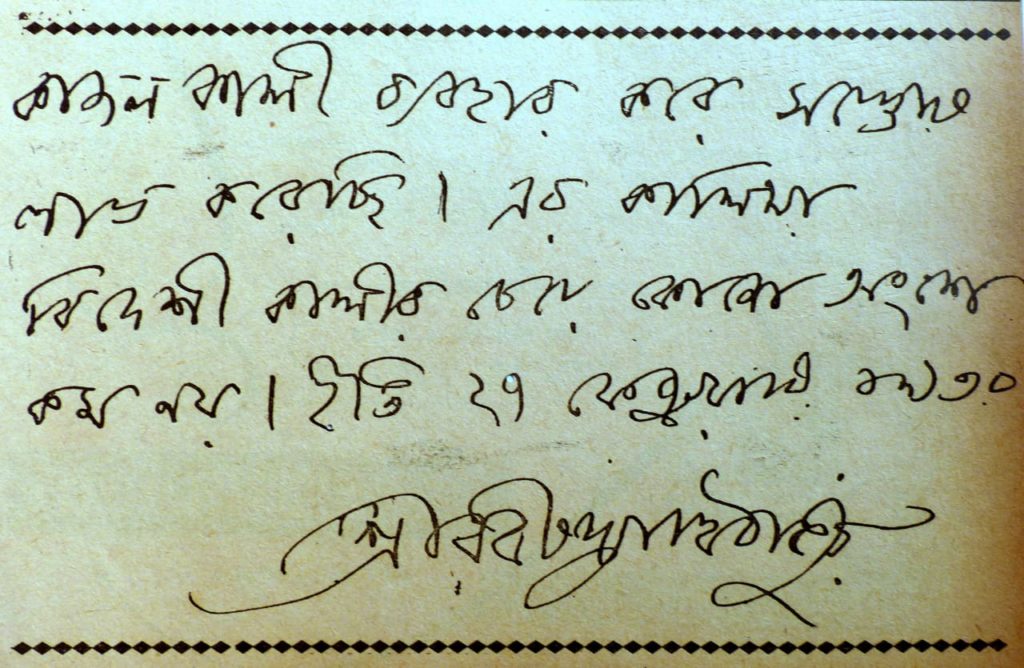 কাজল কালী ব্যবহার করে সন্তোষ
লাভ করেছি। এর কালিমা
বিদেশী কালীর চেয়ে কোনো অংশে
কম নয়। ইতি ২৭ ফেব্রুয়ারি ১৯৩০
শ্রীরবীন্দ্রনাথ ঠাকুর